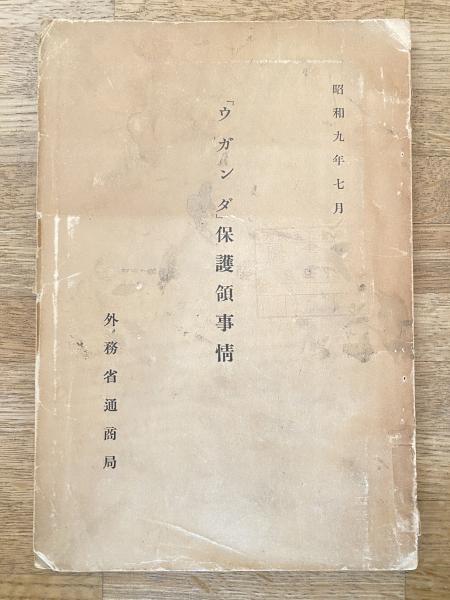 昭和九年七月
「ウガンダ」保護領事情
外務省通商局